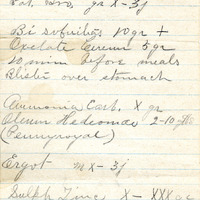 Pot. Bro. gr x - 3j
Bi subnitras 10 gr +
Oxalate Cerium 5 gr
20 min before meals
Blister over stomach
Ammonia Carb. X gr
Oleum Hedeomae 2-10
(Pennyroyal)
Ergot m x - 3j
Sulph Zinc X - XXX gr